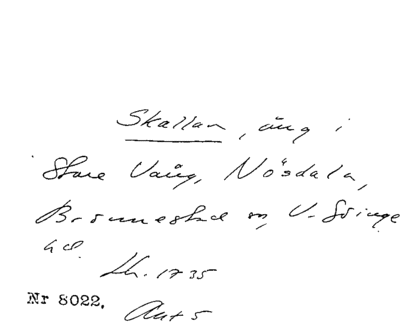 Skallan, äng i
Stare Vång, Nösdala,
Brönnestad sn, V. Göinge
hd.
Lh. 1735
Nr 8022. Akt 5